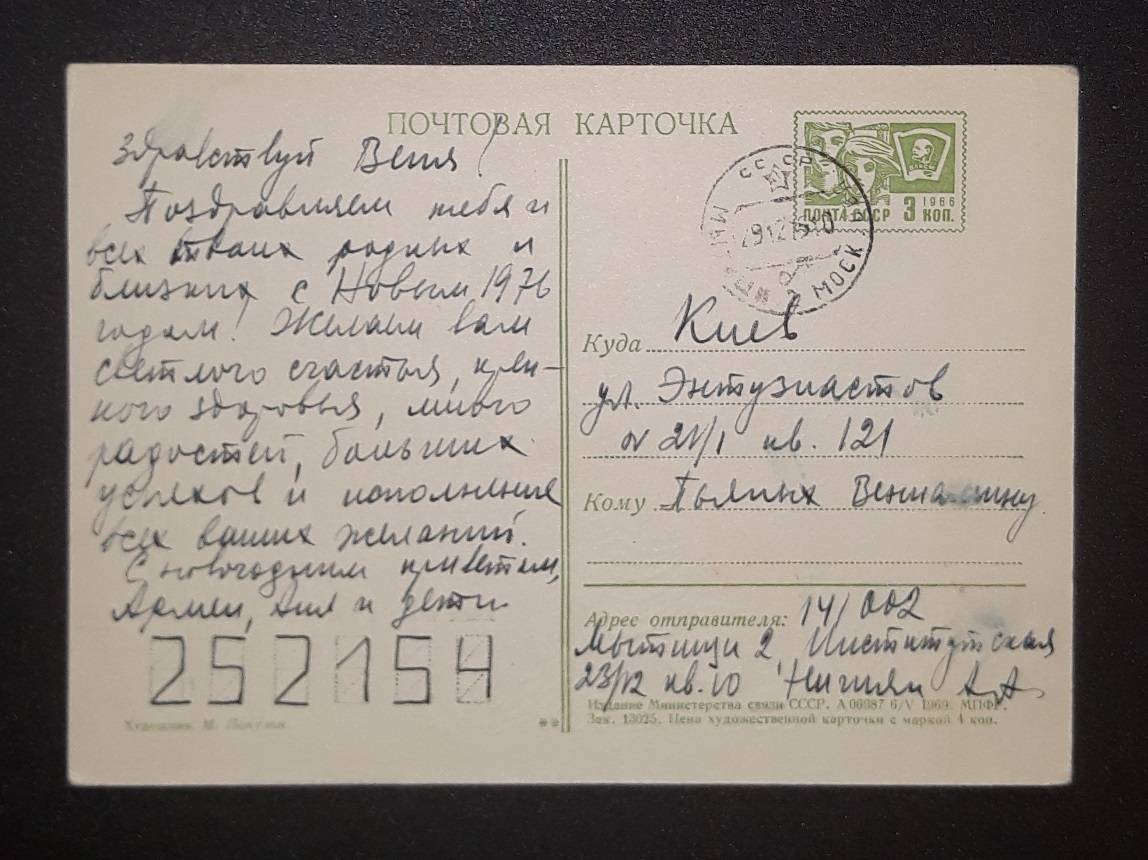 ПОЧТОВАЯ КАРТОЧКА
Здравствуй Веня!
Поздравляем тебя и
всех твоих родных и
близких с Новым 1976
годом! Желаем вам
светлого счастья, креп-
кого здоровья, много
радостей, больших
успехов и исполнения
всех ваших желаний.
С новогодним приветом,
Армен, Аля и дети
252154
Художник М.
**
ВЛКСМ
1966
ПОЧТА СССР 3 КОП.
СССР
МОСК
Куда Киев
ул. Энтузиастов
№ 21/1 кв. 121
Кому Пьяных Вениамину
Адрес отправителя: 141002
Мытищи 2, Институтская
23/12 кв. 10 А.А.
Издание Министерства связи СССР. А 06987 6/V 1969. МПФГ.
Зак. 13025. Цена художественной карточки с маркой 4 коп.